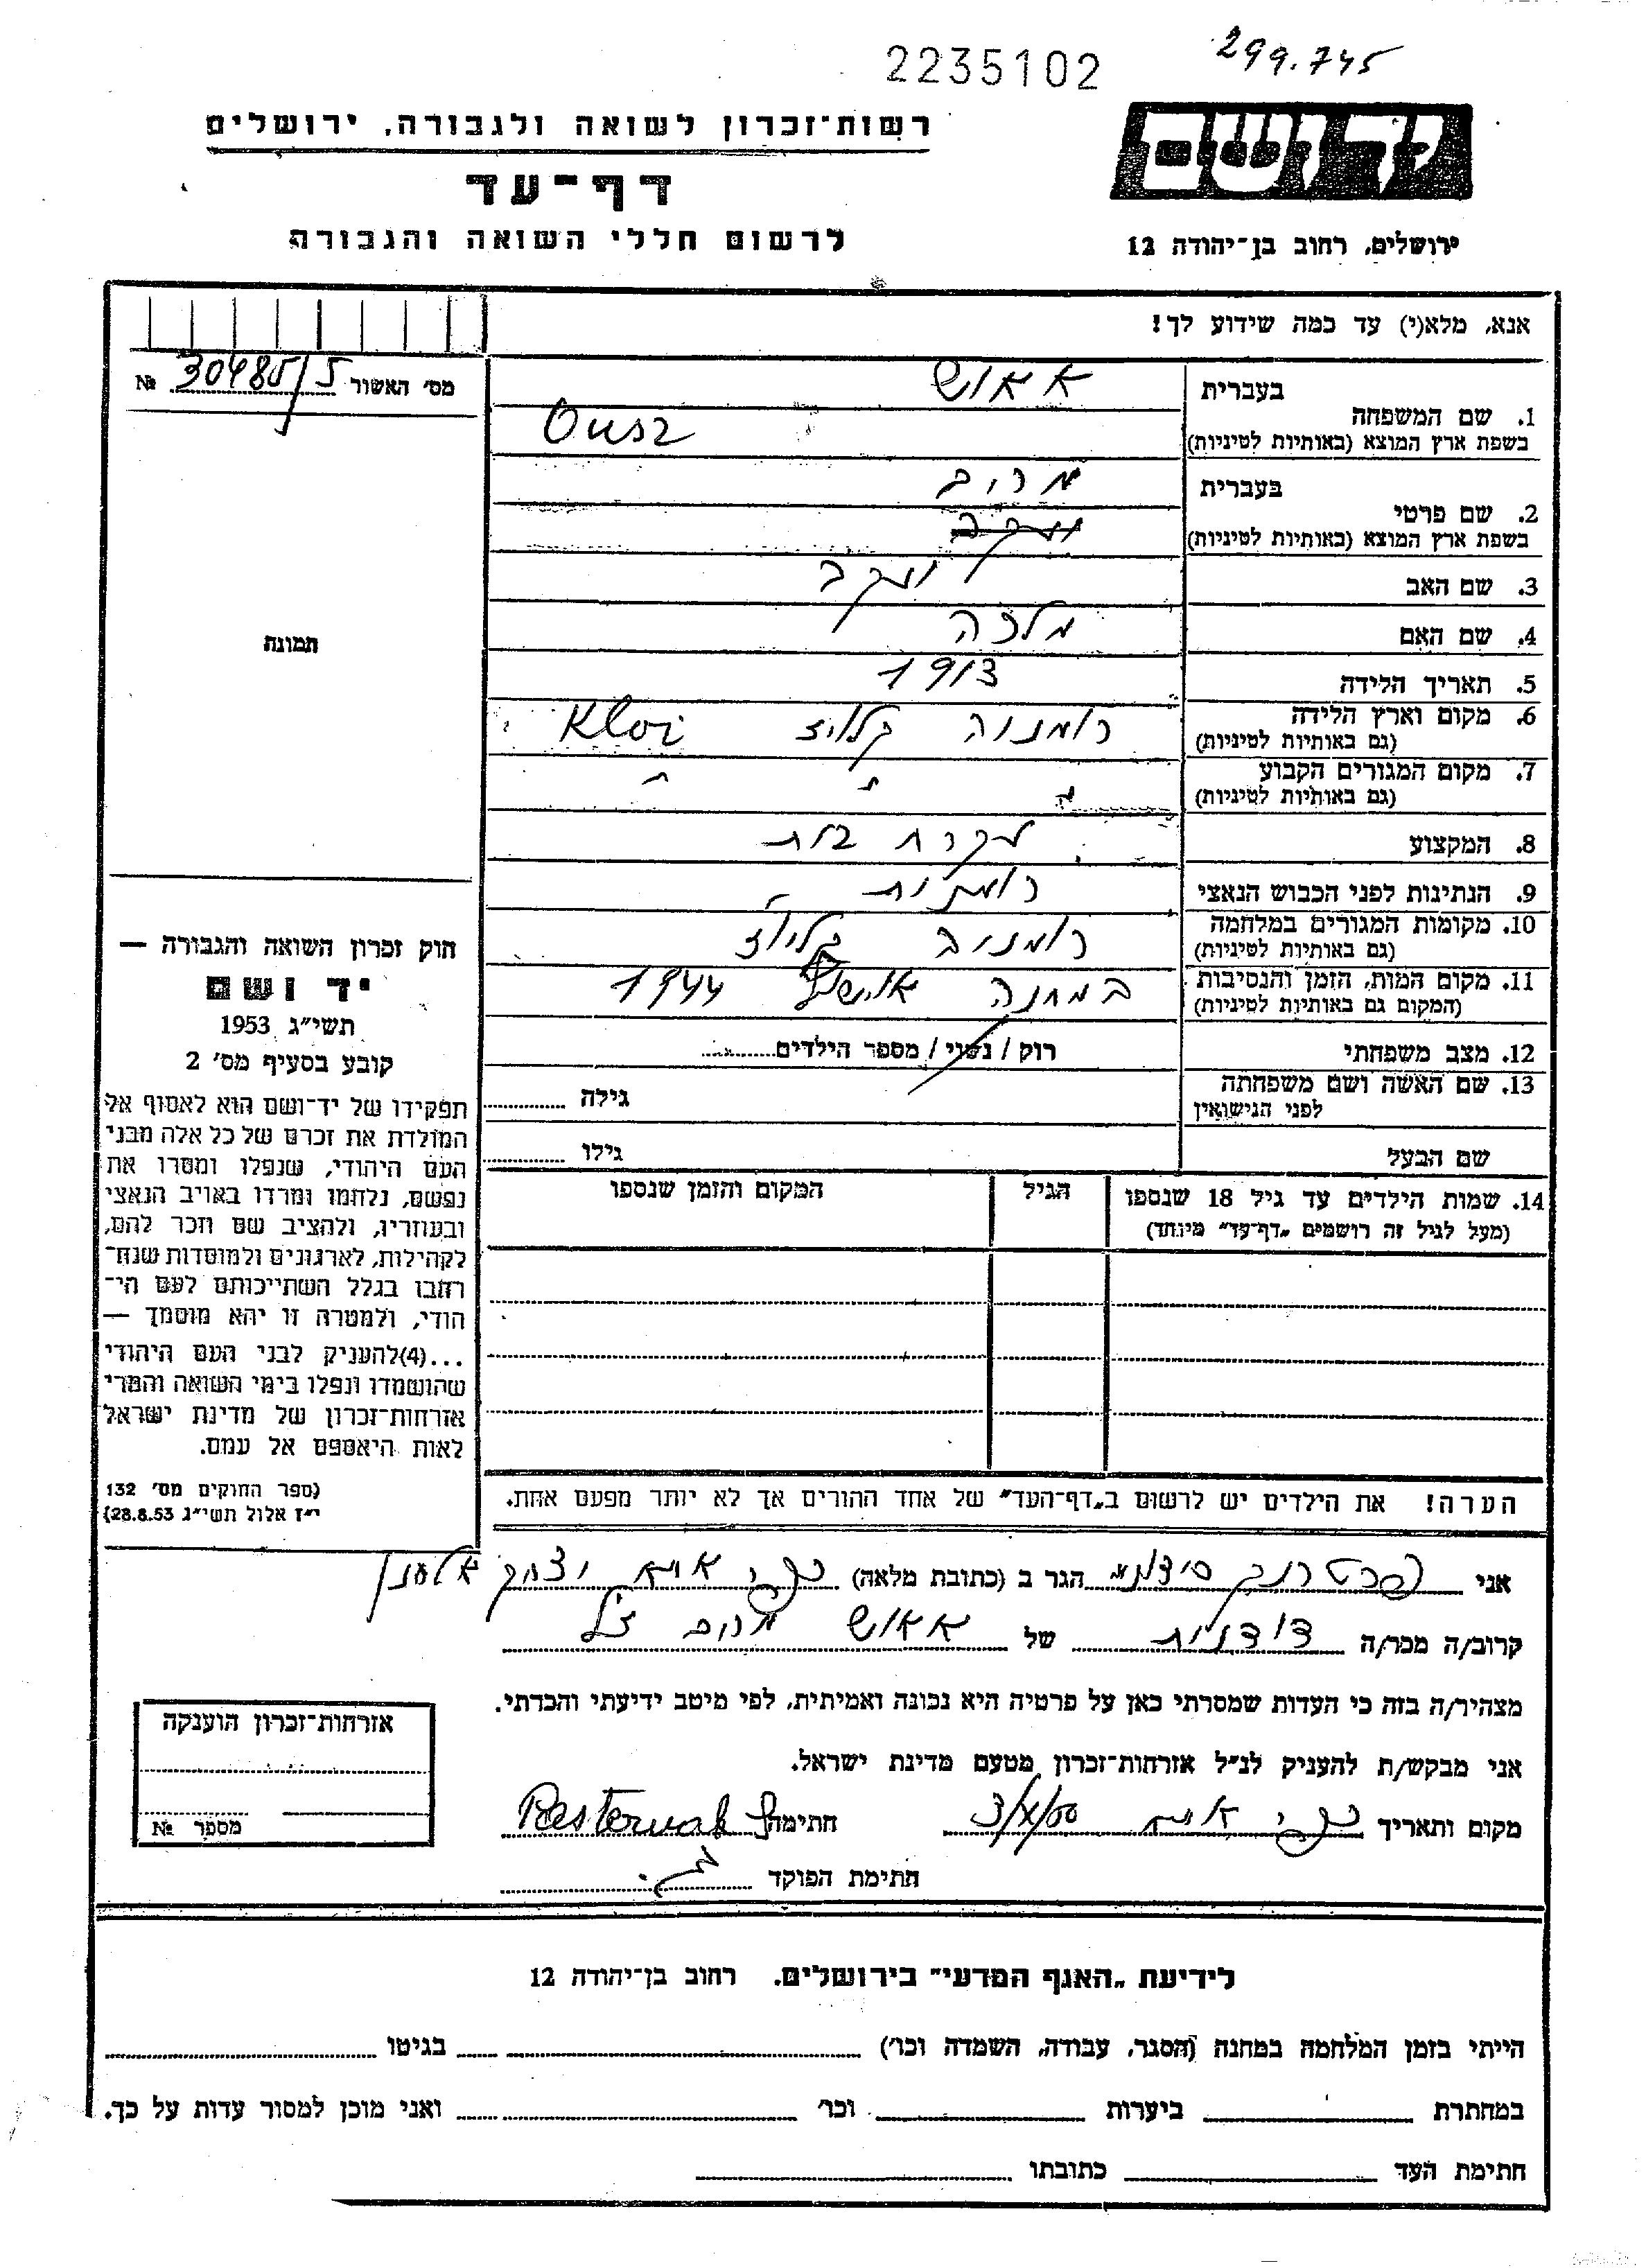 2235102
299.745
רשות־זכרון לשואה ולגבורה, ירושלים
יד ושם
דף־עד
לרשום חללי השואה והגבורה
ירושלים, רחוב בן־יהודה 12
אנא, מלא(י) עד כמה שידוע לך!
מס' האשור 30485/5 №
בעברית
1. שם המשפחה
בשפת ארץ המוצא (באותיות לטיניות)
אאוש
Ousz
בעברית
2. שם פרטי
בשפת ארץ המוצא (באותיות לטיניות)
3. שם האב יעקב
4. שם האם מלכה
5. תאריך הלידה 1913
6. מקום וארץ הלידה
(גם באותיות לטיניות)
רומניה קלויז Kloz
7. מקום המגורים הקבוע
(גם באותיות לטיניות)
8. המקצוע עקרת בית
9. הנתינות לפני הכבוש הנאצי רומנית
10. מקומות המגורים במלחמה
(גם באותיות לטיניות)
רומניה קלויז
11. מקום המות, הזמן והנסיבות
(המקום גם באותיות לטיניות)
במחנה 1944
12. מצב משפחתי רוק / נשוי / מספר הילדים
13. שם האשה ושם משפחתה
לפני הנישואין
גילה
שם הבעל
גילו
14. שמות הילדים עד גיל 18 שנספו
(מעל לגיל זה רושמים „דף־עד" מיוחד)
הגיל
המקום והזמן שנספו
תמונת
חוק זכרון השואה והגבורה —
יד ושם
תשי"ג 1953
קובע בסעיף מס' 2
תפקידו של יד־ושם הוא לאסוף אל
המולדת את זכרם של כל אלה מבני
העם היהודי, שנפלו ומסרו את
נפשם, נלחמו ומרדו באויב הנאצי
ובעוזריו, ולהציב שם וזכר להם,
לקהילות, לארגונים ולמוסדות שנח־
רבו בגלל השתייכותם לעם הי־
הודי, ולמטרה זו יהא מוסמך —
...(4)להעניק לבני העם היהודי
שהושמדו ונפלו בימי השואה והמרי
אזרחות־זכרון של מדינת ישראל
לאות היאספם אל עמם.
(ספר החוקים מס' 132
י"ז אלול תשי"ג 28.8.53)
הערה! את הילדים יש לרשום ב„דף־העד" של אחד ההורים אך לא יותר מפעם אחת.
אני הגר ב (כתובת מלאה)
קרוב/ה מכר/ה של אאוש
מצהיר/ה בזה כי העדות שמסרתי כאן על פרטיה היא נכונה ואמיתית, לפי מיטב ידיעתי והכרתי.
אני מבקש/ת להעניק לנ"ל אזרחות־זכרון מטעם מדינת ישראל.
מקום ותאריך חתימה
חתימת הפוקד
אזרחות־זכרון הוענקה
מספר №
לידיעת „האגף המדעי" בירושלים. רחוב בן־יהודה 12
הייתי בזמן המלחמה במחנה (הסגר, עבודה, השמדה וכו') בגיטו
במחתרת ביערות וכו' ואני מוכן למסור עדות על כך.
חתימת העד כתובתו